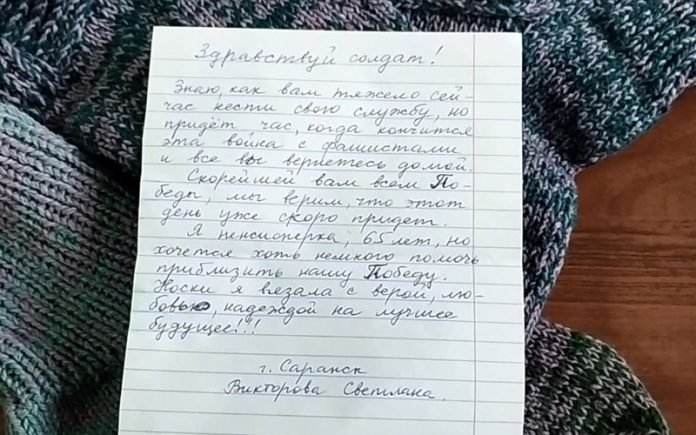 Здравствуй солдат!
Знаю, как вам тяжело сей-
час нести свою службу, но
придёт час, когда кончится
эта война с фашистами
и все вы вернетесь домой.
Скорейшей вам всем По-
беды, мы верим, что этот
день уже скоро придет.
Я пенсионерка, 65 лет, но
хочется хоть немного помочь
приблизить нашу Победу.
Носки я вязала с верой, лю-
бовью, надеждой на лучшее
будущее!!!
г. Саранск
Викторова Светлана.